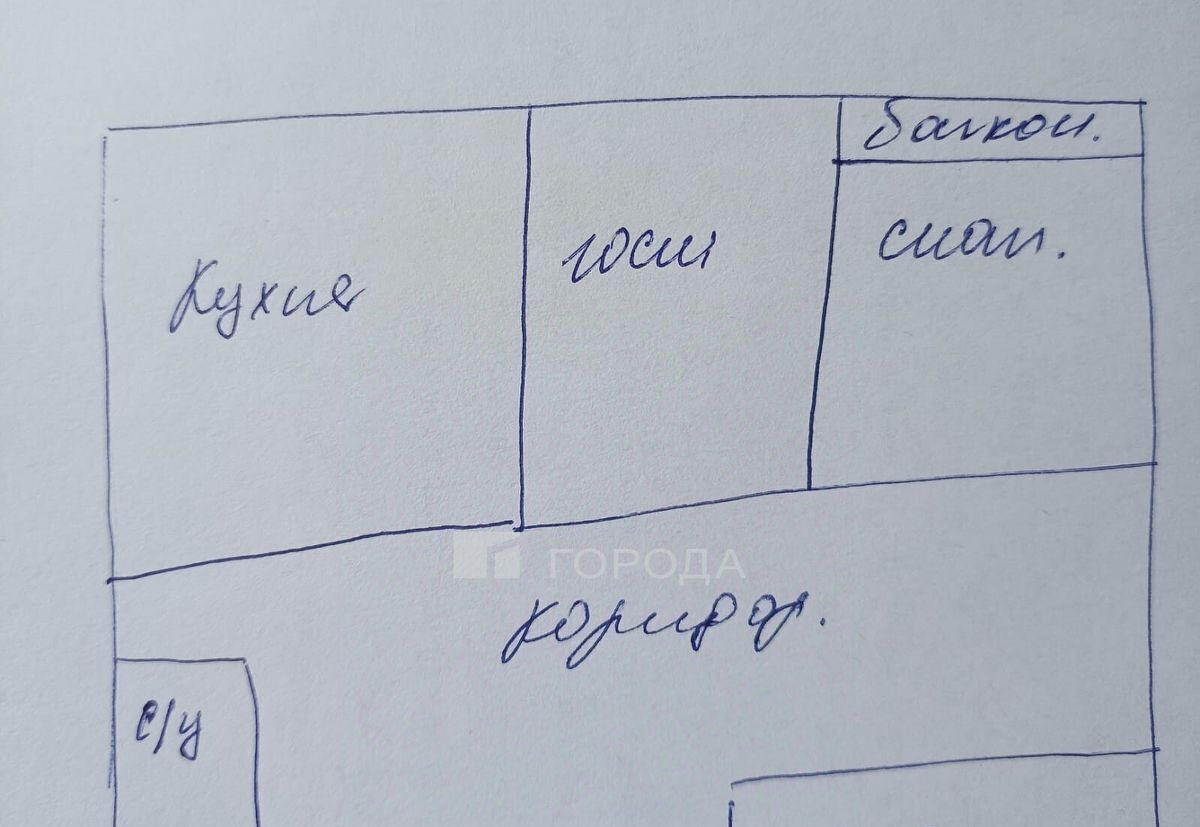 Балкон.
Кухня
гост
спал.
ГОРОДА
коридор.
с/у